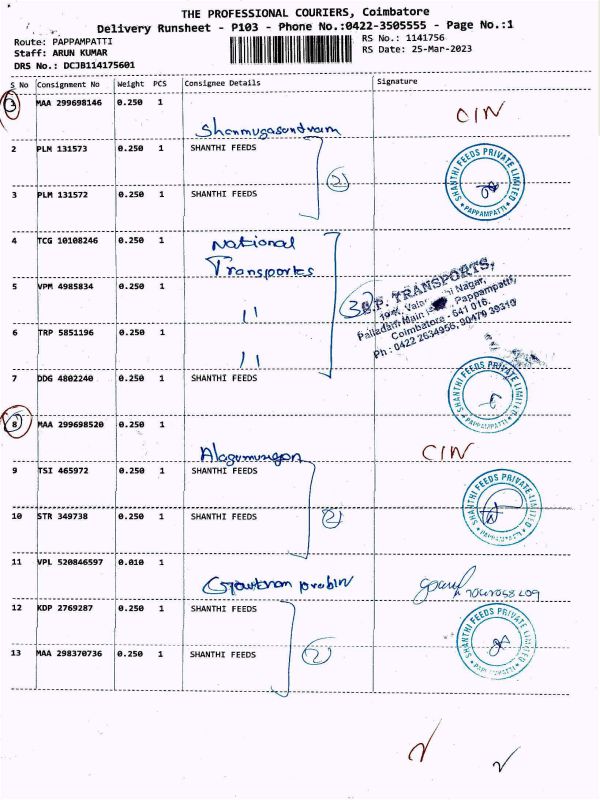 THE PROFESSIONAL COURIERS, Coimbatore
Delivery Runsheet - P103 - Phone No.:0422-3505555 - Page No.:1
Route: PAPPAMPATTI
Staff: ARUN KUMAR
DRS No.: DCJB114175601
RS No.: 1141756
RS Date: 25-Mar-2023
S No Consignment No Weight PCS Consignee Details Signature
MAA 299698146 0.250 1 CIN
Shanmugasundram
2 PLM 131573 0.250 1 SHANTHI FEEDS
SHANTHI FEEDS PRIVATE LIMITED
PAPPAMPATTI
2
3 PLM 131572 0.250 1 SHANTHI FEEDS
4 TCG 10108246 0.250 1 National
Transportes
5 VPM 4985834 0.250 1 "
3
S.P. TRANSPORTS,
Nagar,
Palladam Main Pappampatti,
Coimbatore - 641 016.
Ph : 0422 2634956, 90479 39310
6 TRP 5851196 0.250 1 "
7 DDG 4802240 0.250 1 SHANTHI FEEDS
SHANTHI FEEDS PRIVATE LIMITED
PAPPAMPATTI
8 MAA 299698520 0.250 1 CIN
Alagumurgan
9 TSI 465972 0.250 1 SHANTHI FEEDS
SHANTHI FEEDS PRIVATE LIMITED
PAPPAMPATTI
10 STR 349738 0.250 1 SHANTHI FEEDS
2
11 VPL 520846597 0.010 1
12 KDP 2769287 0.250 1 SHANTHI FEEDS
SHANTHI FEEDS PRIVATE LIMITED
13 MAA 298370736 0.250 1 SHANTHI FEEDS
2